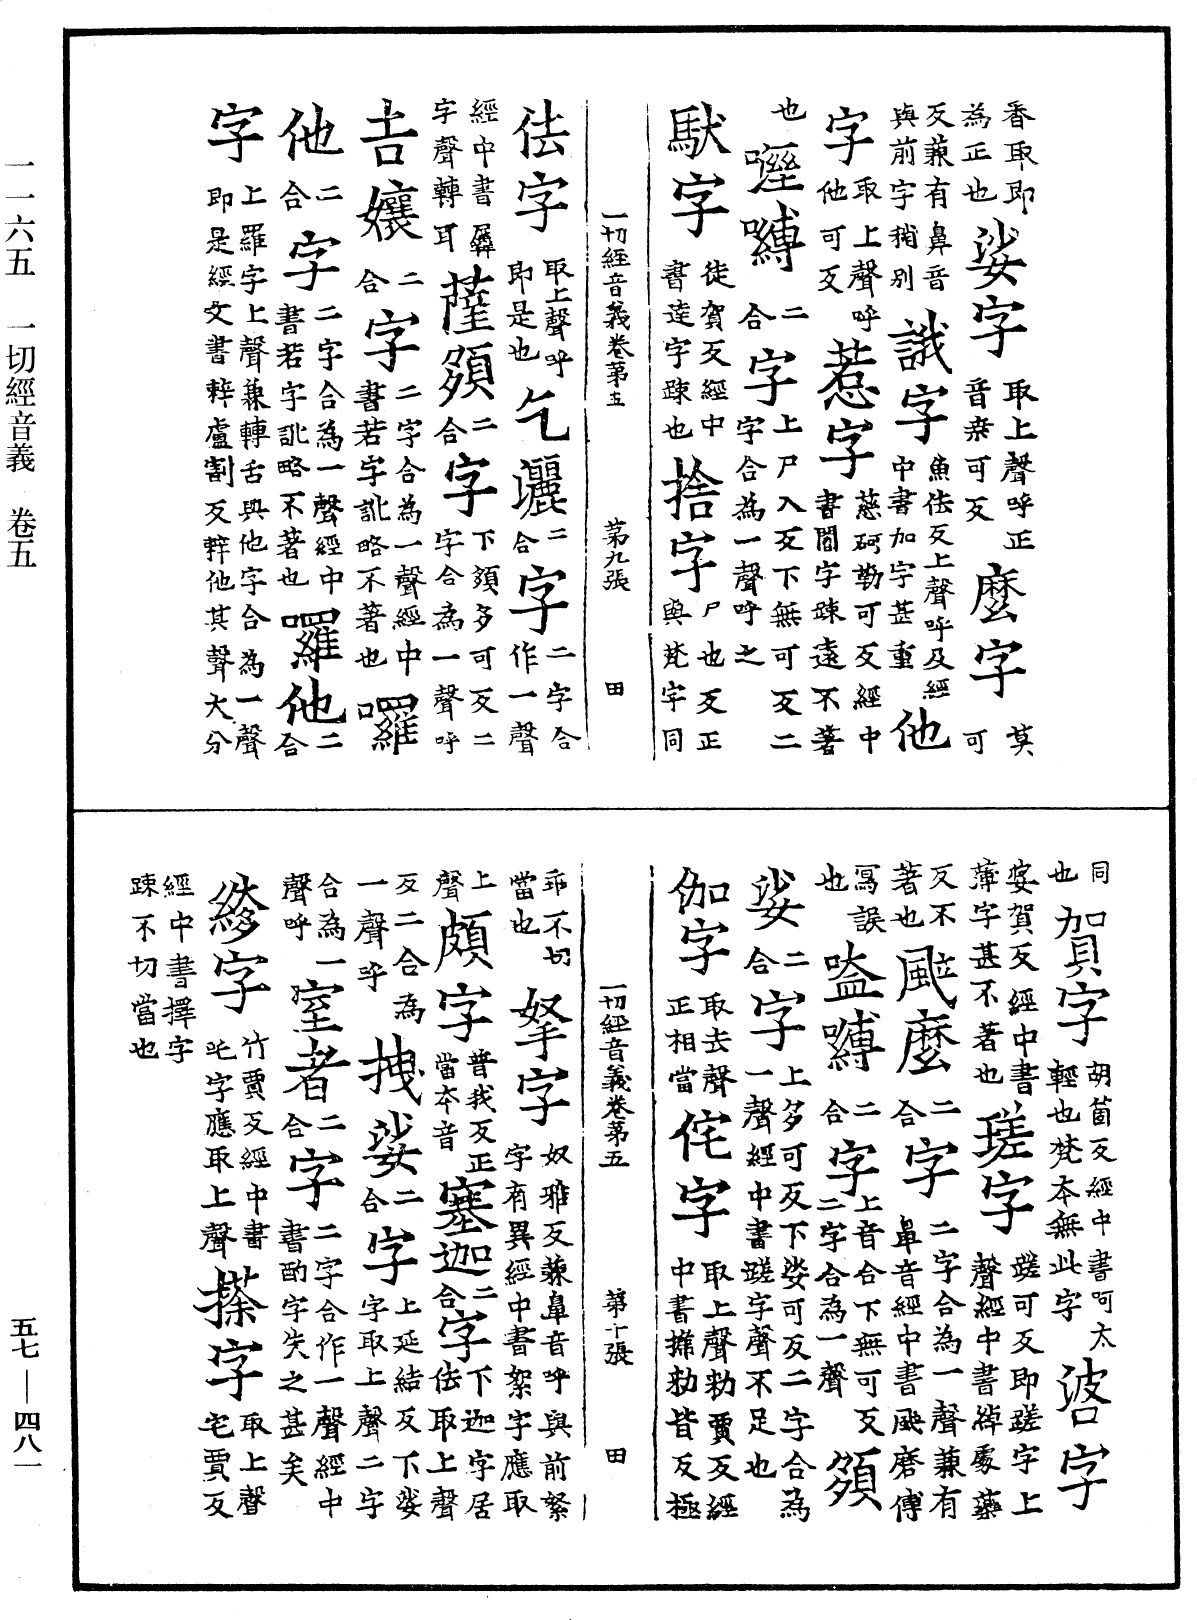 一一六五　一切經音義　卷五
香取即
為正也娑字取上聲呼正
音桒可反麼字莫可
反兼有鼻音
與前字稍別誐字魚佉反上聲呼及經
中書加字甚重他
字取上聲呼
他可反惹字慈砢勒可反經中
書闍字踈遠不著
也𠼝嚩二合字上尸入反下無可反二
字合為一聲呼之
馱字徒賀反經中
書達字踈也捨字尸也反正
與梵字同
一切經音義卷第五　第九張　田
佉字取上聲呼
即是也乞灑二合字二字合
作一聲
經中書羼
字聲轉耳薩頞二合字下頞多可反二
字合為一聲呼
吉孃二合字二字合為一聲經中
書若字訛略不著也囉
他二合字二字合為一聲經中
書若字訛略不著也囉他二合
字上羅字上聲兼轉舌與他字合為一聲
即是經文書辢盧割反辢他其聲大分
同
也賀字胡箇反經中書呵太
輕也梵本無此字濨字
娑賀反經中書
薄字甚不著也瑳字蹉可反即蹉字上
聲經中書綽𠁅藥
反不
著也颯麼二合字二字合為一聲兼有
鼻音經中書颯磨傅
寫誤
也嗑嚩二合字上音合下無可反
二字合為一聲
娑二合字上多可反下娑可反二字合為
一聲經中書蹉字聲不足也
伽字取去聲
正相當侘字取上聲勑賈反經
中書搋勑皆反極
一切經音義卷第五　第十張　田
乖不切
當也拏字奴雅反兼鼻音呼與前絮
字有異經中書絮字應取
上
聲頗字普我反正
當本音塞迦二合字下迦字居
佉取上聲
反二合為
一聲呼拽娑二合字上延結反下娑
字取上聲二字
合為一
聲呼室者二合字二字合作一聲經中
書酌字失之甚矣
字竹賈反經中書
吒字應取上聲搽字取上聲
宅賈反
經中書擇字
踈不切當也
五七—四八一